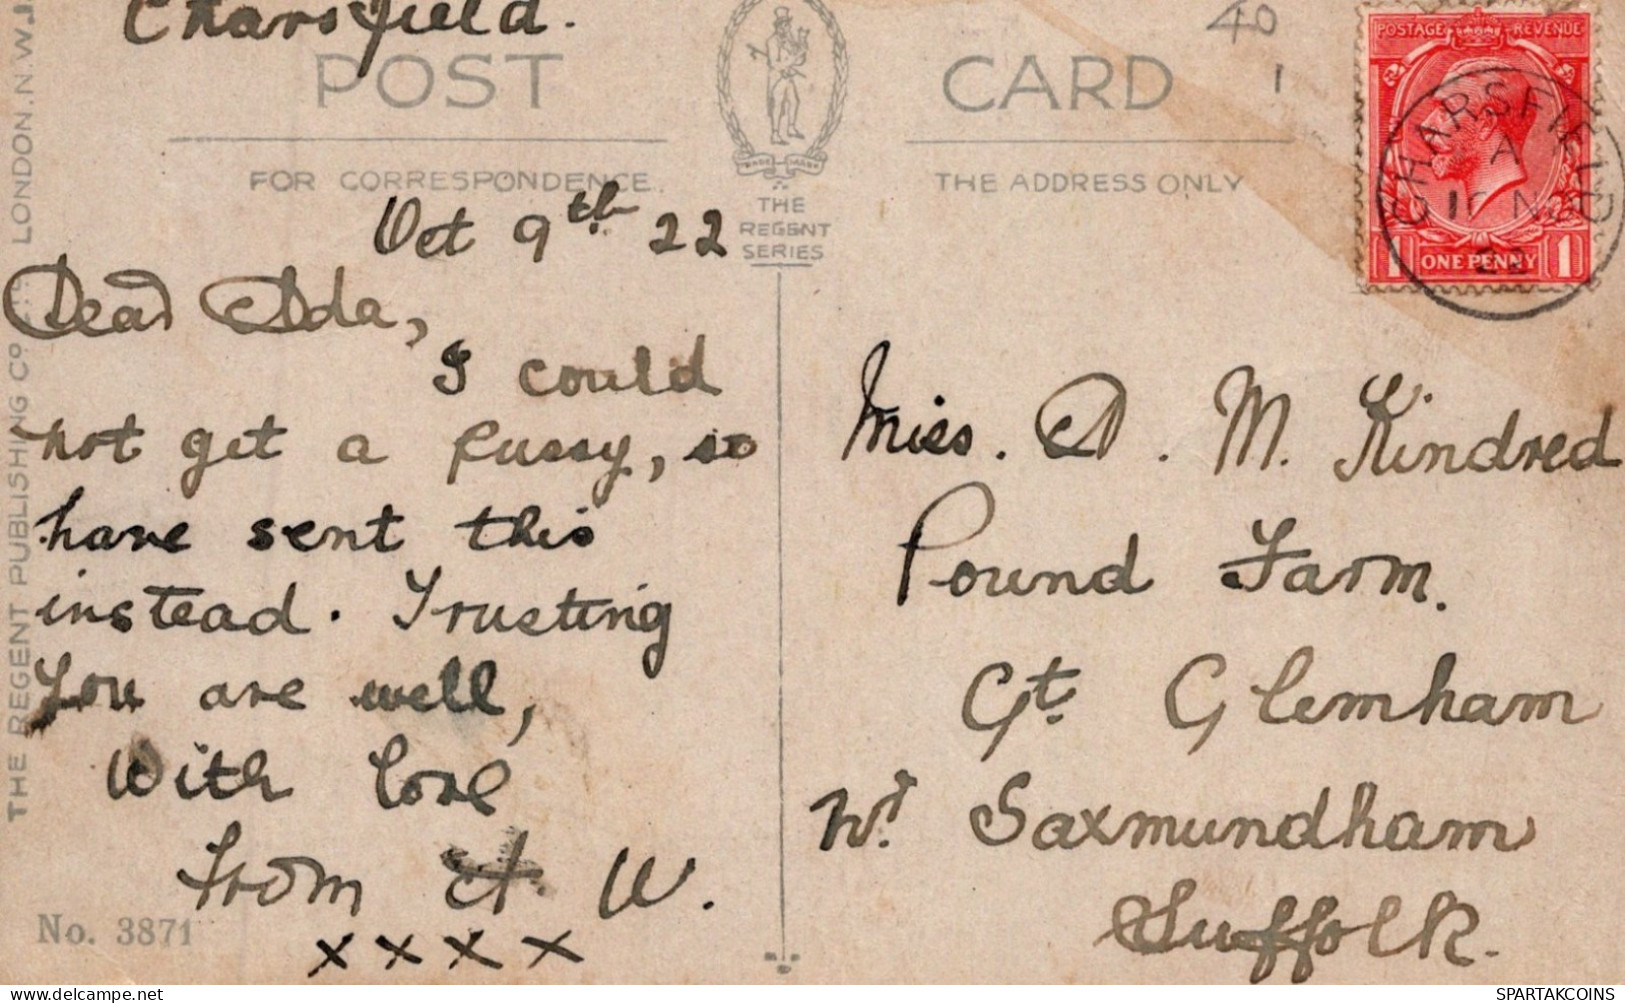 Charsfield.
POST CARD
FOR CORRESPONDENCE
THE ADDRESS ONLY
40
1
TRADE MARK
THE
REGENT
SERIES
POSTAGE REVENUE
ONE PENNY
1 1
CHARSFIELD
A
22
Oct 9th 22
Dear Ada,
I could
not get a pussy, so
have sent this
instead. Trusting
you are well,
With love
from H. W.
x x x x
Miss. A. M. Kindred
Pound Farm.
Gt. Glemham
Nr. Saxmundham
Suffolk.
THE REGENT PUBLISHING Co LTD LONDON.N.W.
No. 3871
SPARTAKCOINS